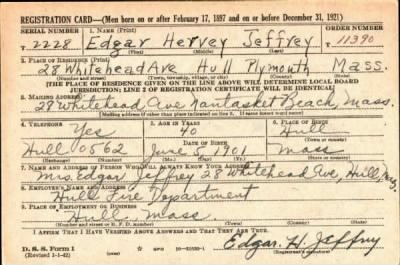 REGISTRATION CARD—(Men born on or after February 17, 1897 and on or before December 31, 1921)
SERIAL NUMBER 1. NAME (Print) ORDER NUMBER
T 2228 Edgar Hervey Jeffrey 11390
(First) (Middle) (Last)
2. PLACE OF RESIDENCE (Print)
28 Whitehead Ave Hull Plymouth Mass.
(Number and street) (Town, township, village, or city) (County) (State)
[THE PLACE OF RESIDENCE GIVEN ON THE LINE ABOVE WILL DETERMINE LOCAL BOARD
JURISDICTION; LINE 2 OF REGISTRATION CERTIFICATE WILL BE IDENTICAL]
3. MAILING ADDRESS
28 Whitehead Ave Nantasket Beach, Mass.
[Mailing address if other than place indicated on line 2. If same insert word same]
4. TELEPHONE 5. AGE IN YEARS 6. PLACE OF BIRTH
Yes 40 Hull
DATE OF BIRTH (Town or county)
Hull 0562 June 5, 1901 Mass
(Exchange) (Number) (Mo.) (Day) (Yr.) (State or country)
7. NAME AND ADDRESS OF PERSON WHO WILL ALWAYS KNOW YOUR ADDRESS
Mrs. Edgar Jeffrey 28 Whitehead Ave, Hull, Mass.
8. EMPLOYER'S NAME AND ADDRESS
Hull Fire Department
9. PLACE OF EMPLOYMENT OR BUSINESS
Hull, Mass.
(Number and street or R. F. D. number) (Town) (County) (State)
I AFFIRM THAT I HAVE VERIFIED ABOVE ANSWERS AND THAT THEY ARE TRUE.
D. S. S. Form 1 GPO Edgar. H. Jeffrey
(Revised 1-1-42) (Registrant's signature)